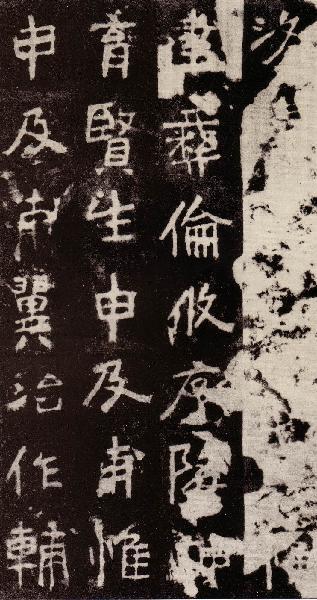 建彝倫攸序降神
育賢生申及甫惟
申及甫翼治作輔